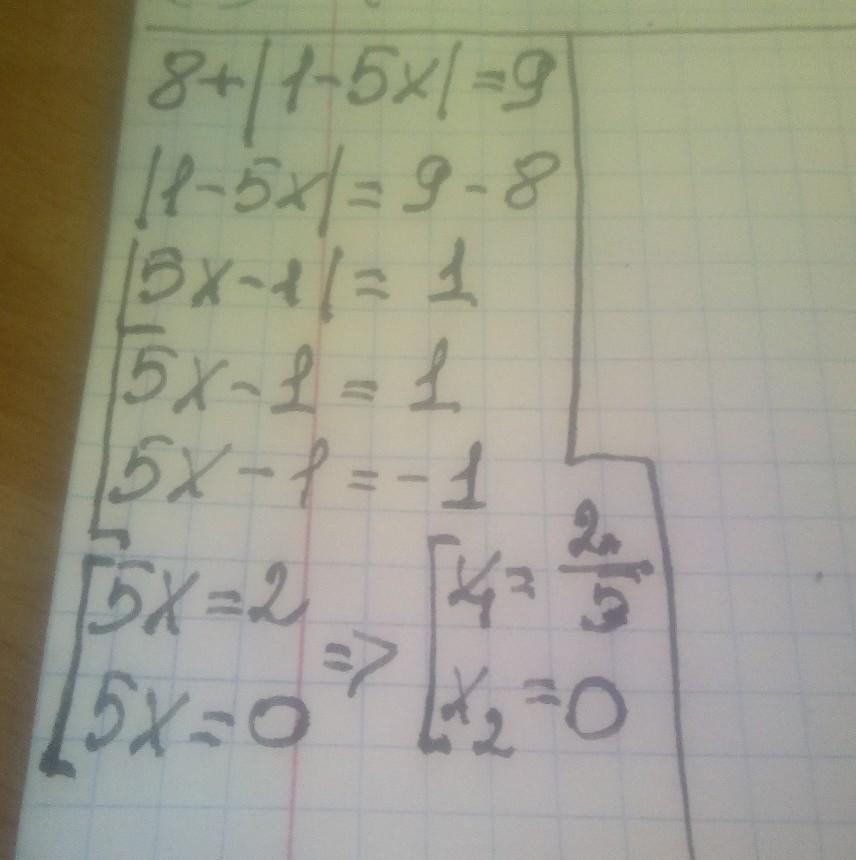 8+|1-5x|=9
|1-5x|= 9-8
|5x-1|= 1
[5x-1= 1
5x-1=-1
[5x=2 => [x₁= 2/5
5x=0 x₂=0